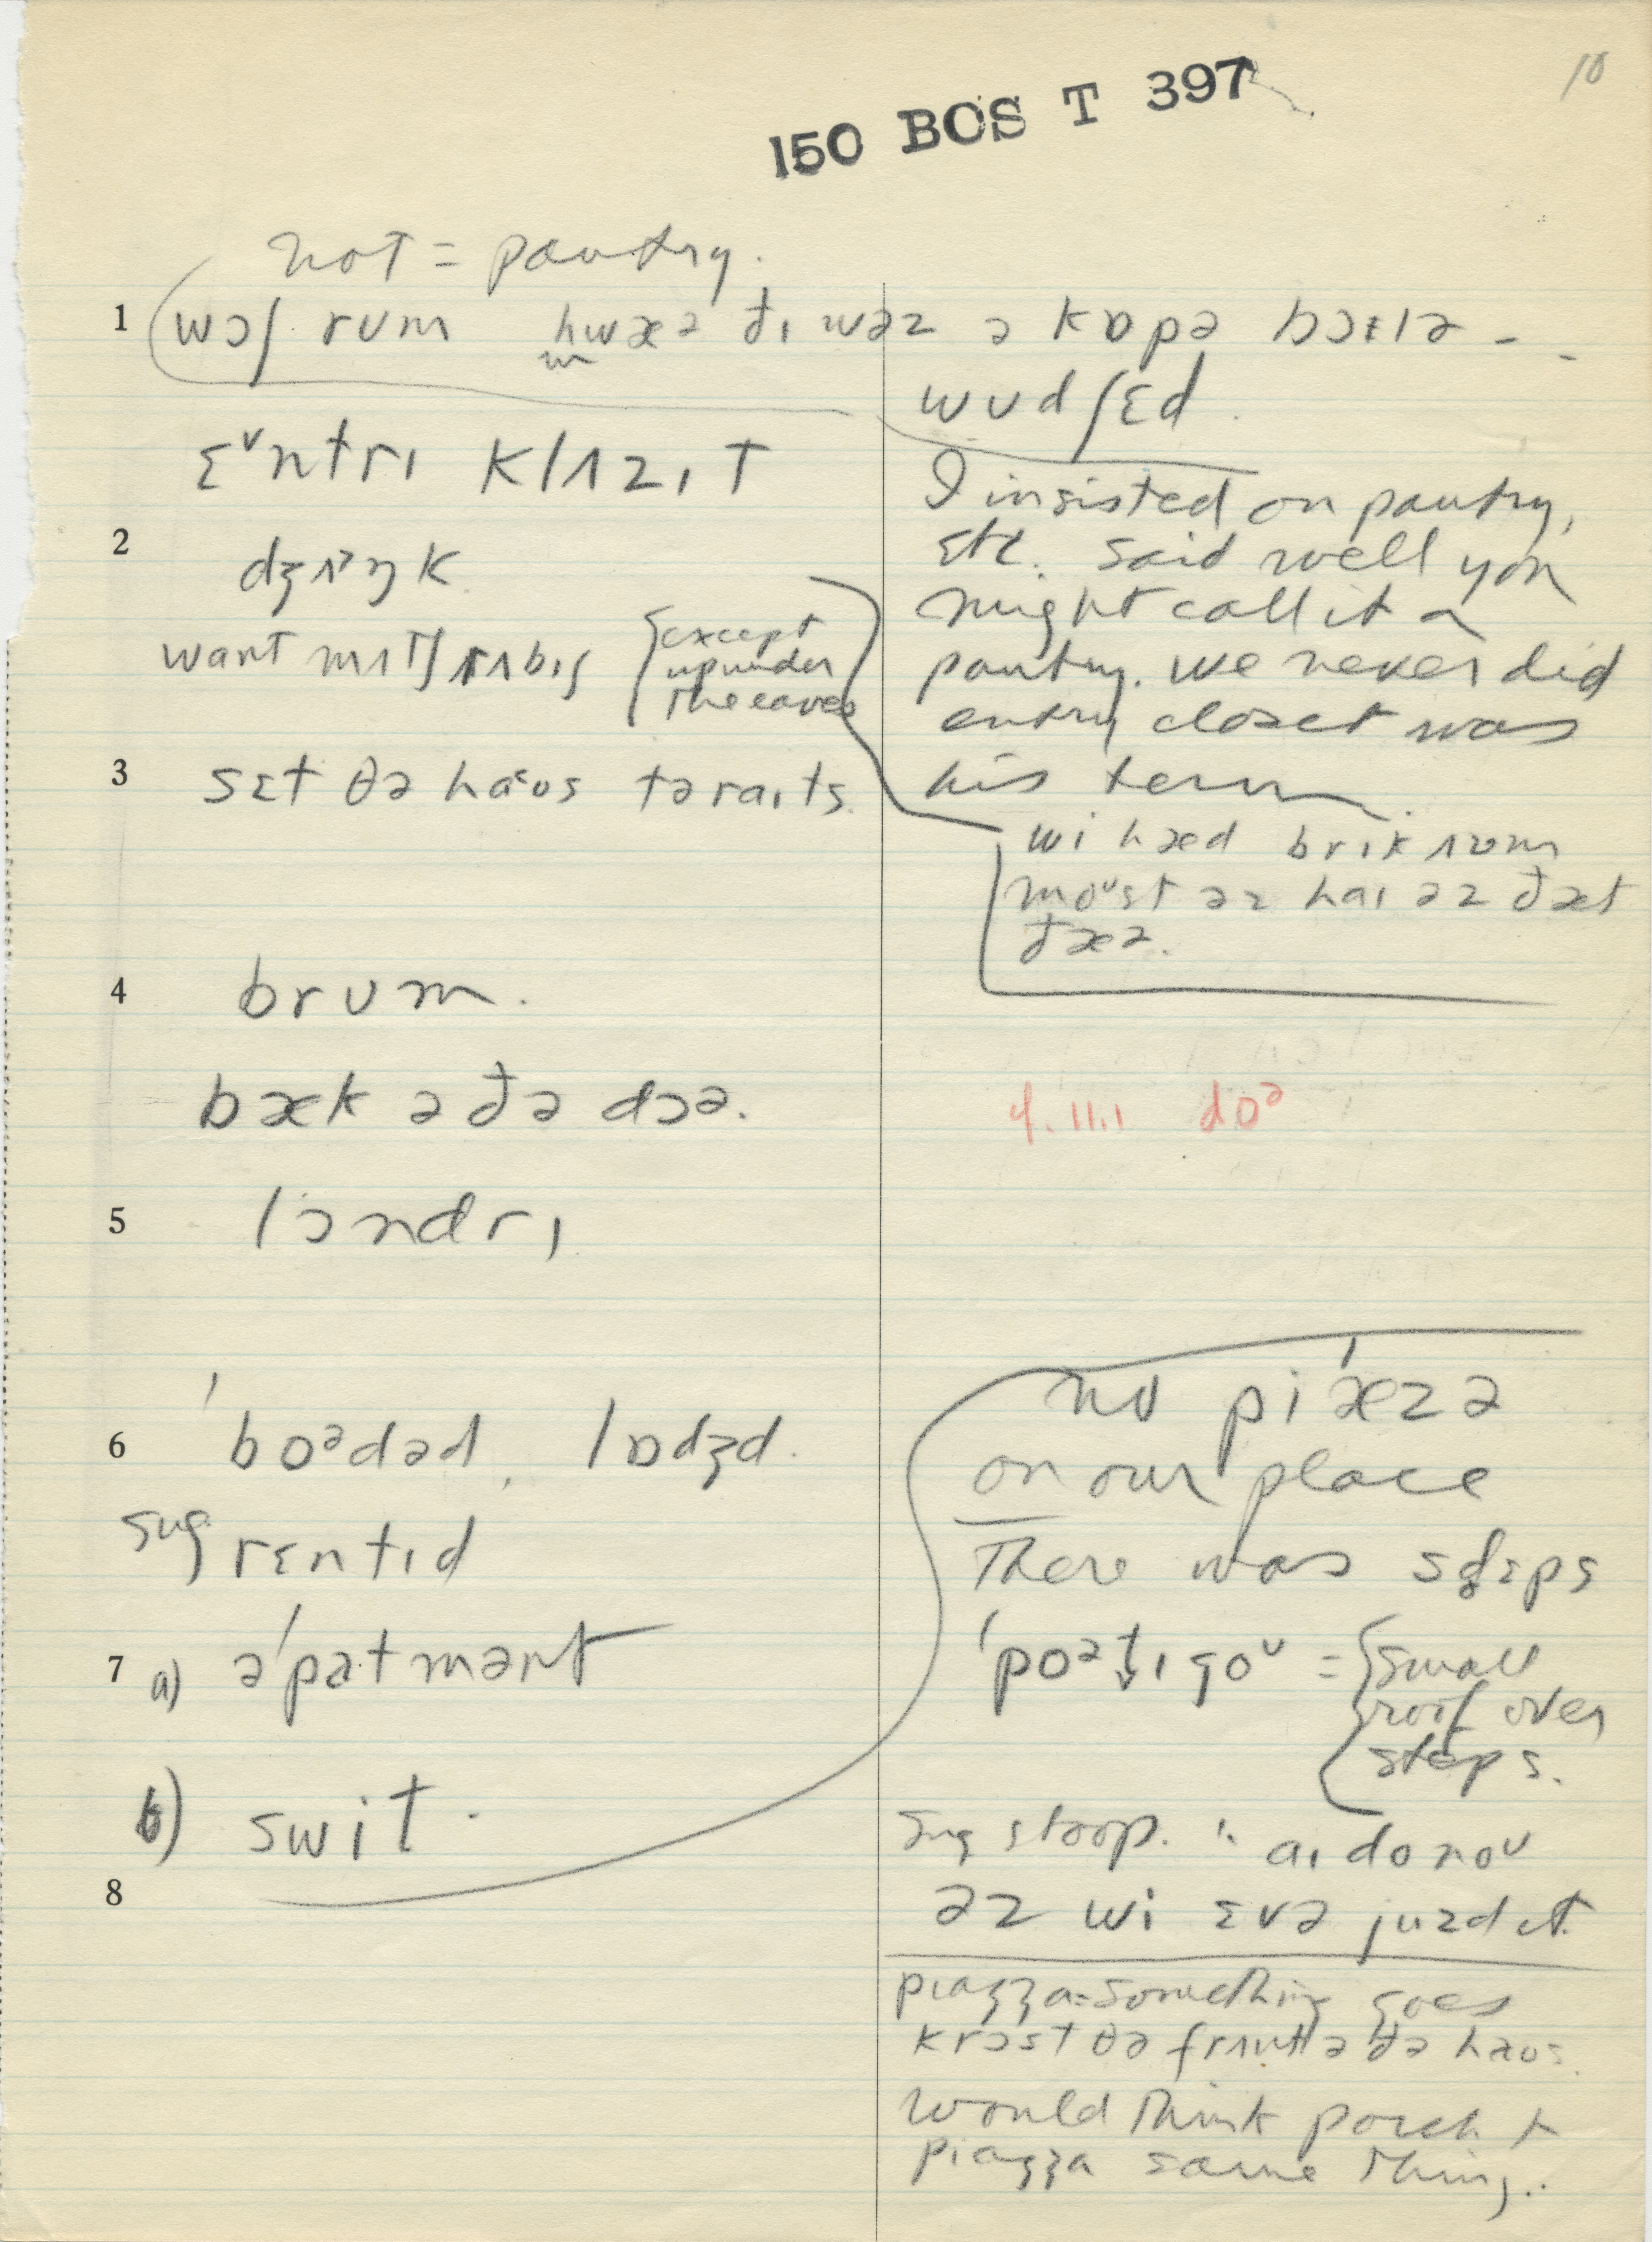 10
150 BOS T 397
not = pantry.
1 wɔʃ rum hwæə ðɪ wəz ə kɒpə bɔɪlə - -
wudʃɛd.
ɛᵛntrɪ klʌzɪt
I insisted on pantry,
etc. said well you
might call it a
pantry. we never did
entry closet was
his term.
2 dʒʌŋk
want mʌtʃ rʌbɪʃ
except
up under
the eaves
3 sɛt ðə haus tə raɪts.
wi hæd brɪk rum
moᵘst əz haɪ əz ðæt
ðæə.
4 brum.
bæk ə ðə dɔə.
4. 11.1 doᵊ
5 lɔndrɪ
6 ˈboᵊdəd, lɒdʒd.
sug rɛntɪd
no piˈæzə
on our place
There was stɛps
ˈpoᵊtɪgoᵘ = small
roof over
steps.
7 a) əˈpatmənt
b) swit.
8
sug stoop. : aɪ do noᵘ
əz wi ɛvə juzd ɪt.
piazza = something goes
krɔst ðə frʌnt ə ðə haus.
would think porch +
piazza same thing..